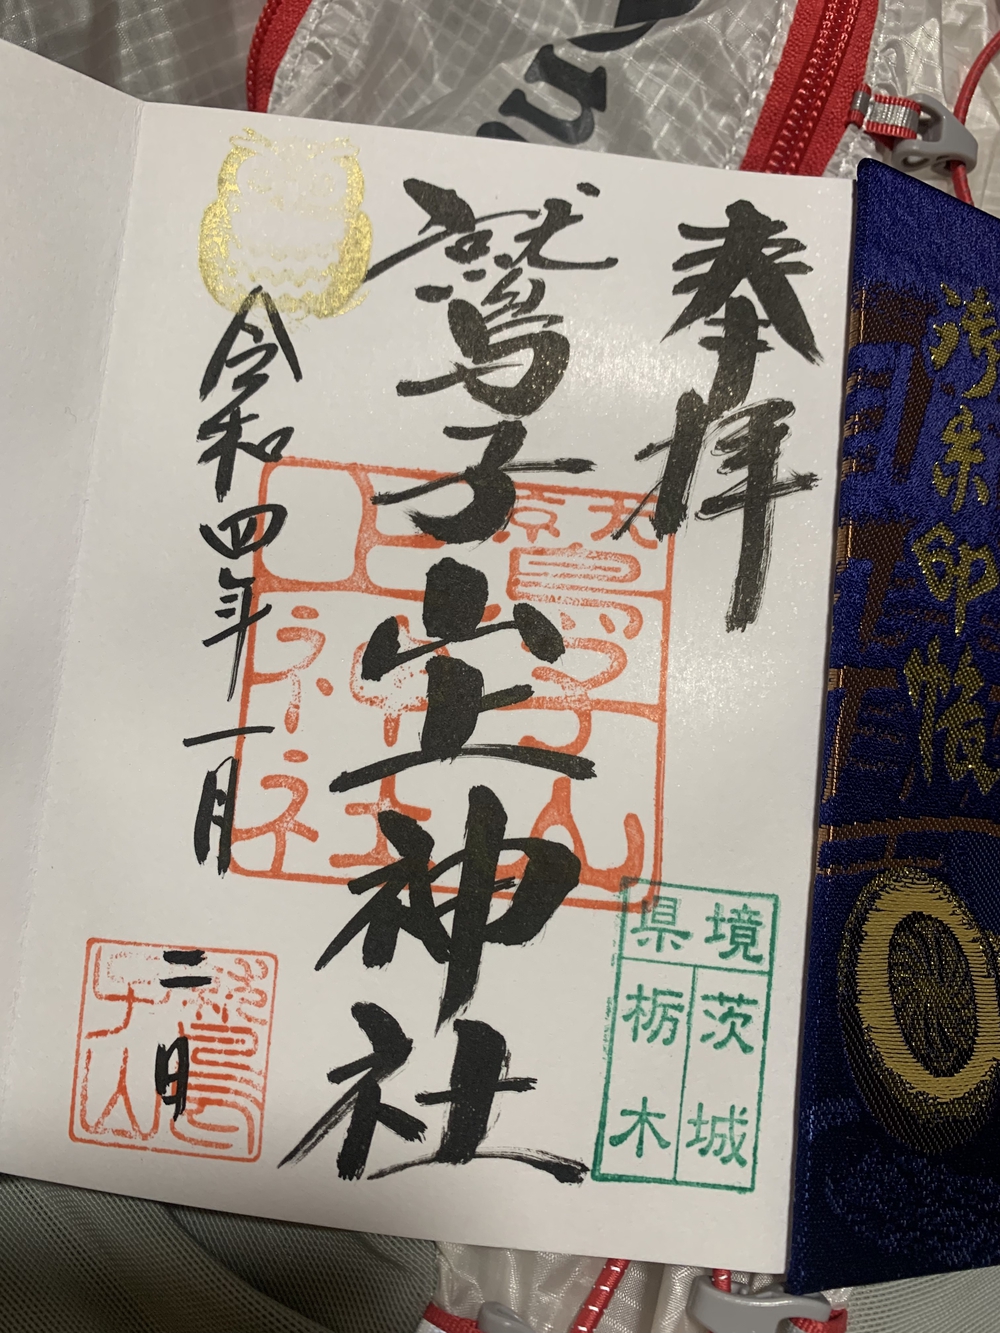 奉拝
鷲子山上神社
令和四年一月
二日
鷲子山
上神社
鷲子山
県境
茨城
栃木
御朱印帳